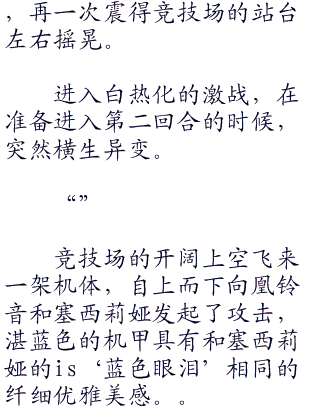 ，再一次震得竞技场的站台
左右摇晃。
进入白热化的激战，在
准备进入第二回合的时候，
突然横生异变。
“”
竞技场的开阔上空飞来
一架机体，自上而下向凰铃
音和塞西莉娅发起了攻击，
湛蓝色的机甲具有和塞西莉
娅的is‘蓝色眼泪’相同的
纤细优雅美感。。